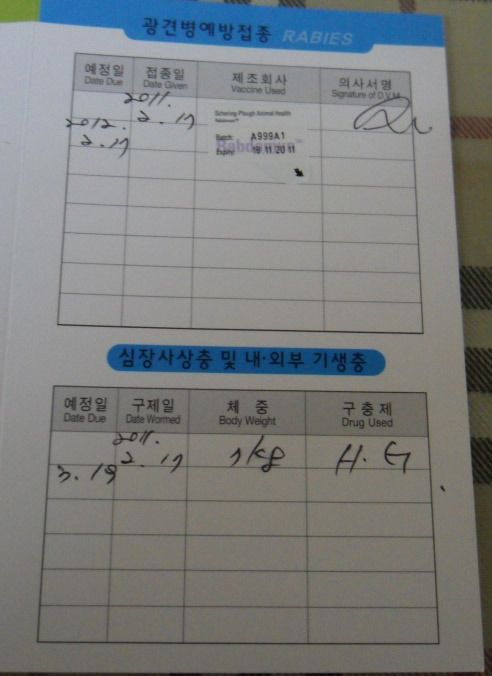 광견병예방접종 RABIES
예정일 접종일 제조회사 의사서명
Date Due Date Given Vaccine Used Signature of D.V.M
2011.
2. 17
2012.
2. 17
Schering-Plough Animal Health
Batch: A999A1
Expiry: 19 11 20 11
심장사상충 및 내·외부 기생충
예정일 구제일 체 중 구 충 제
Date Due Date Wormed Body Weight Drug Used
2011.
2. 17 kg H. G
3. 19